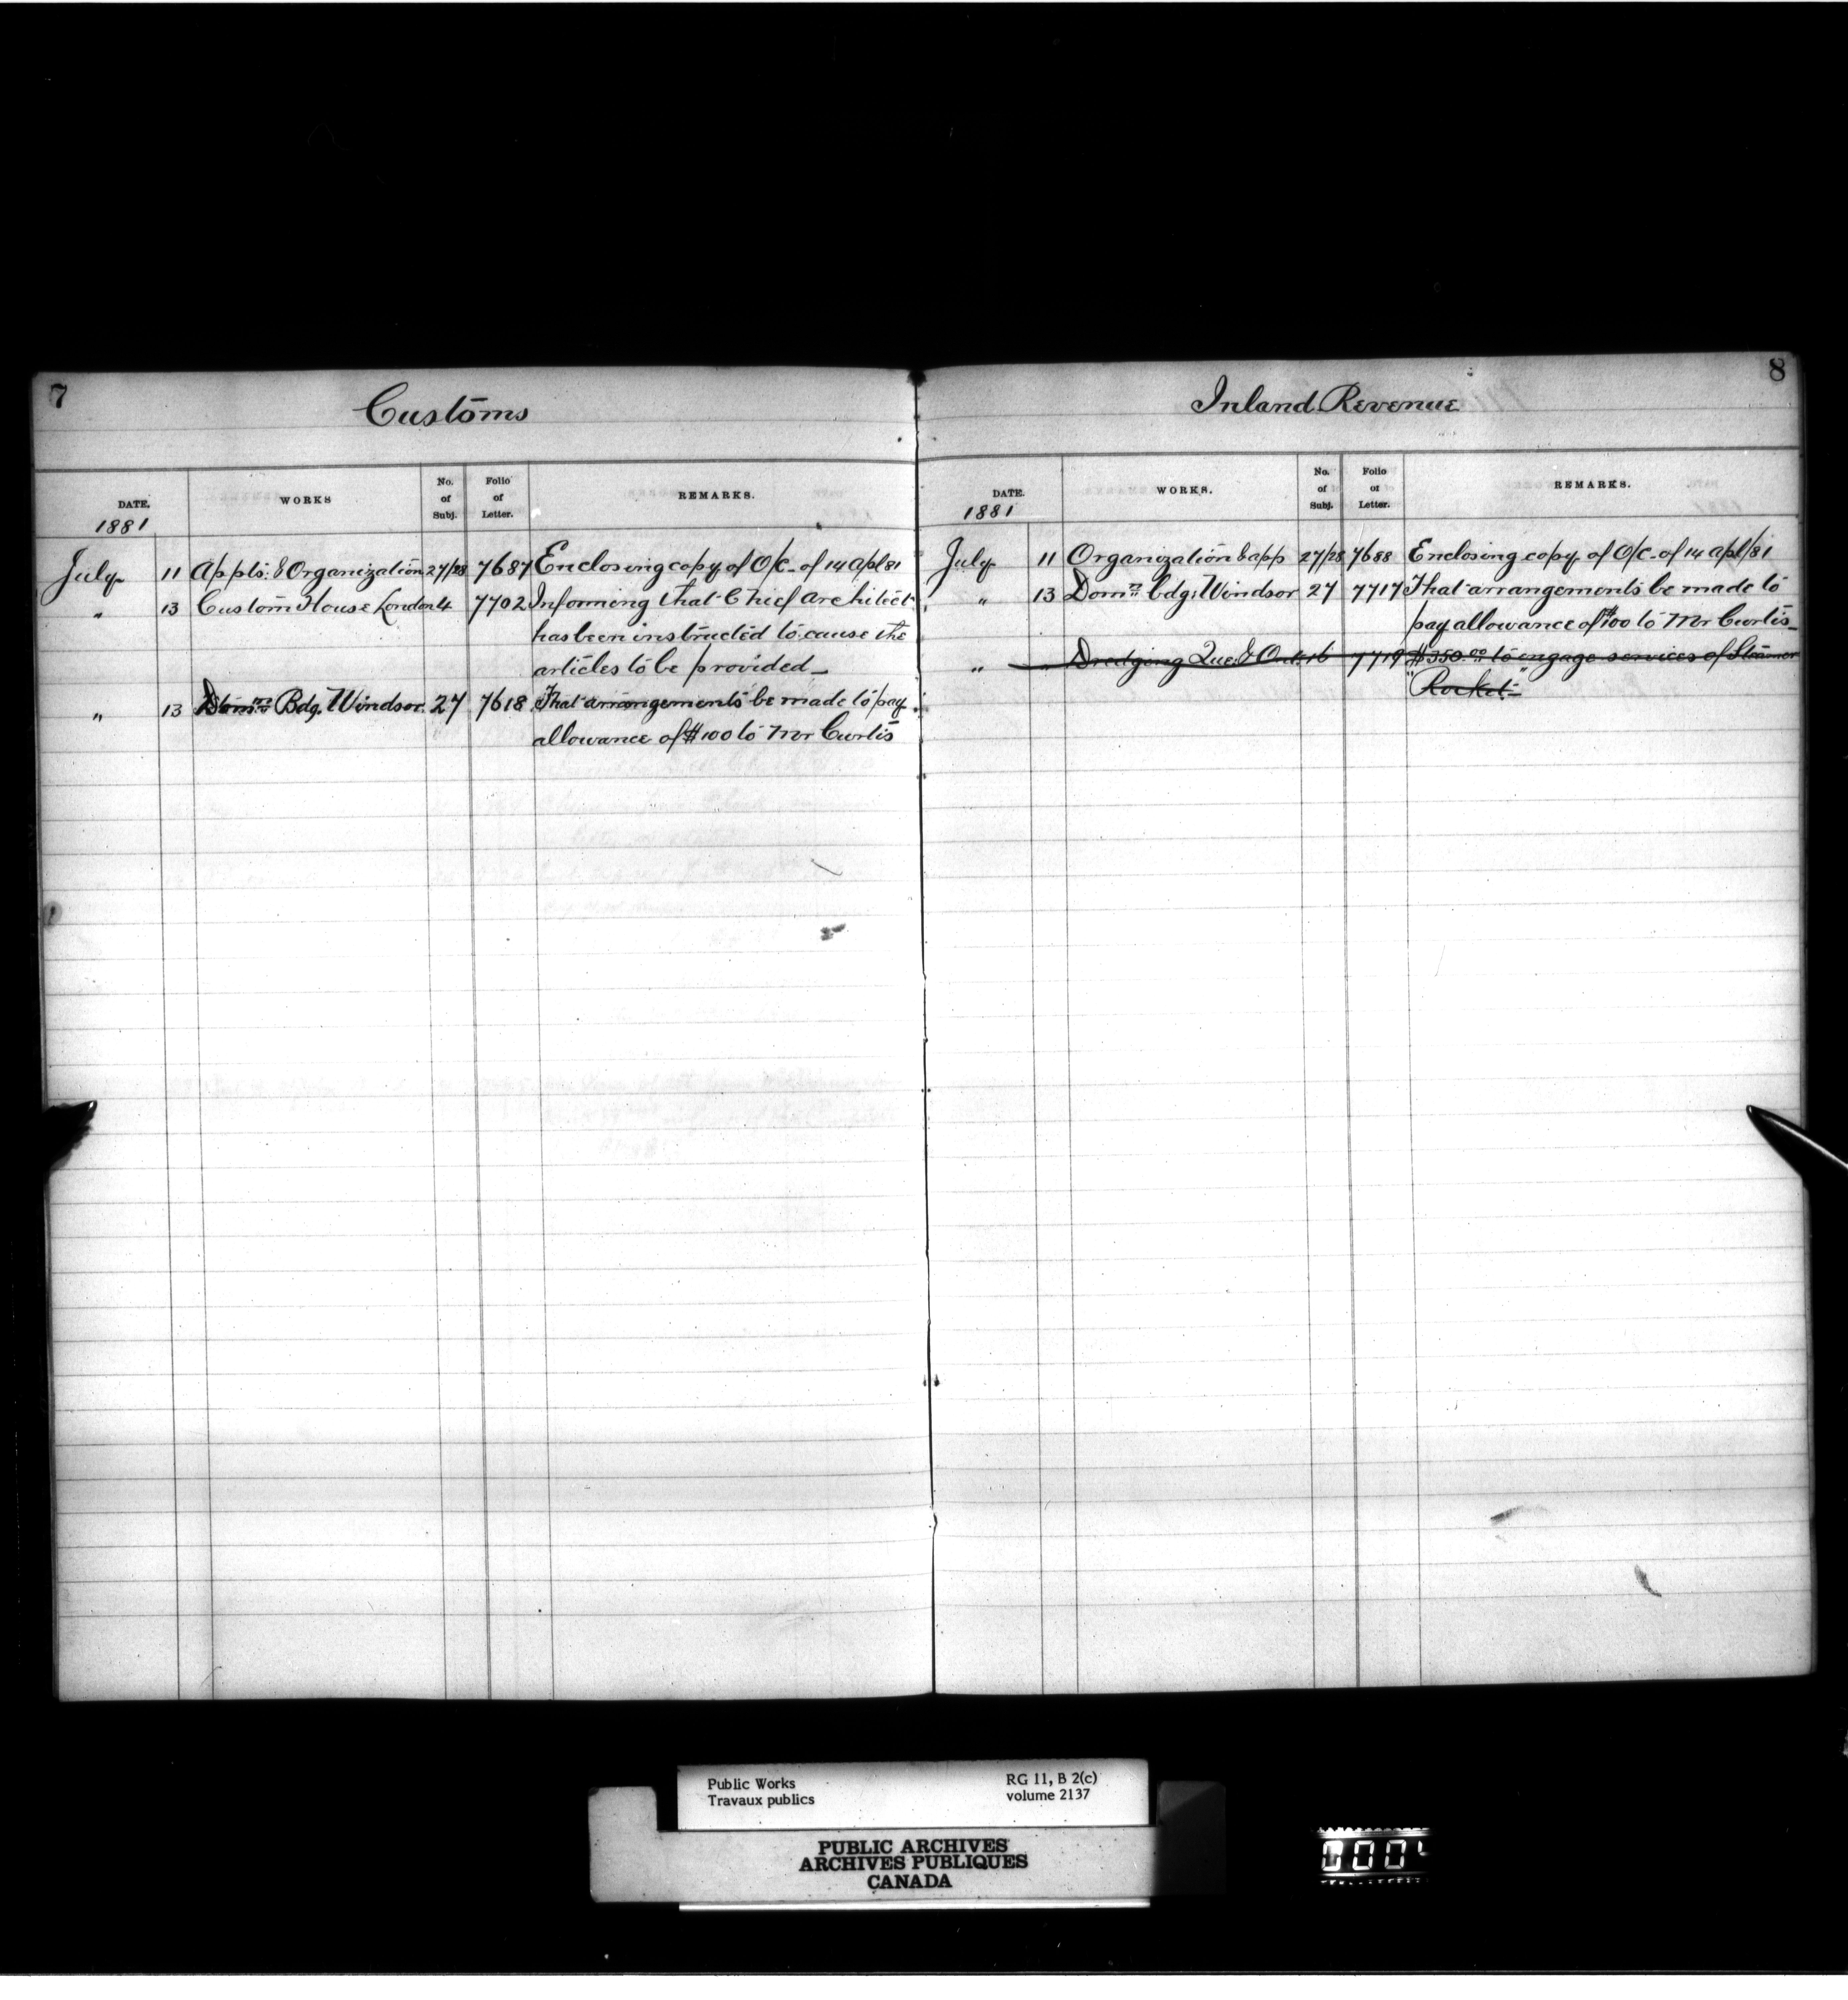 7
Customs
DATE. WORKS No. of Subj. Folio of Letter. REMARKS.
1881
July 11 Appts: & Organization 27/28 7687 Enclosing copy of O/C - of 14 apl 81
" 13 Custom House London 4 7702 Informing that Chief Architect
has been instructed to cause the
articles to be provided_
" 13 Domn Bdg. Windsor. 27 7618 That arrangements be made to pay
allowance of $100 to Mr Curtis
8
Inland Revenue
DATE. WORKS. No. of Subj. Folio of Letter. REMARKS.
1881
July 11 Organization & app 27/28 7688 Enclosing copy of O/C - of 14 apl/81
" 13 Domn bdg: Windsor 27 7717 That arrangements be made to
pay allowance of $100 to Mr Curtis_
" " Dredging Que. & Ont. 16 7719 $350.00 to engage services of Steamer
"Rocket"
Public Works RG 11, B 2(c)
Travaux publics volume 2137
PUBLIC ARCHIVES
ARCHIVES PUBLIQUES
CANADA